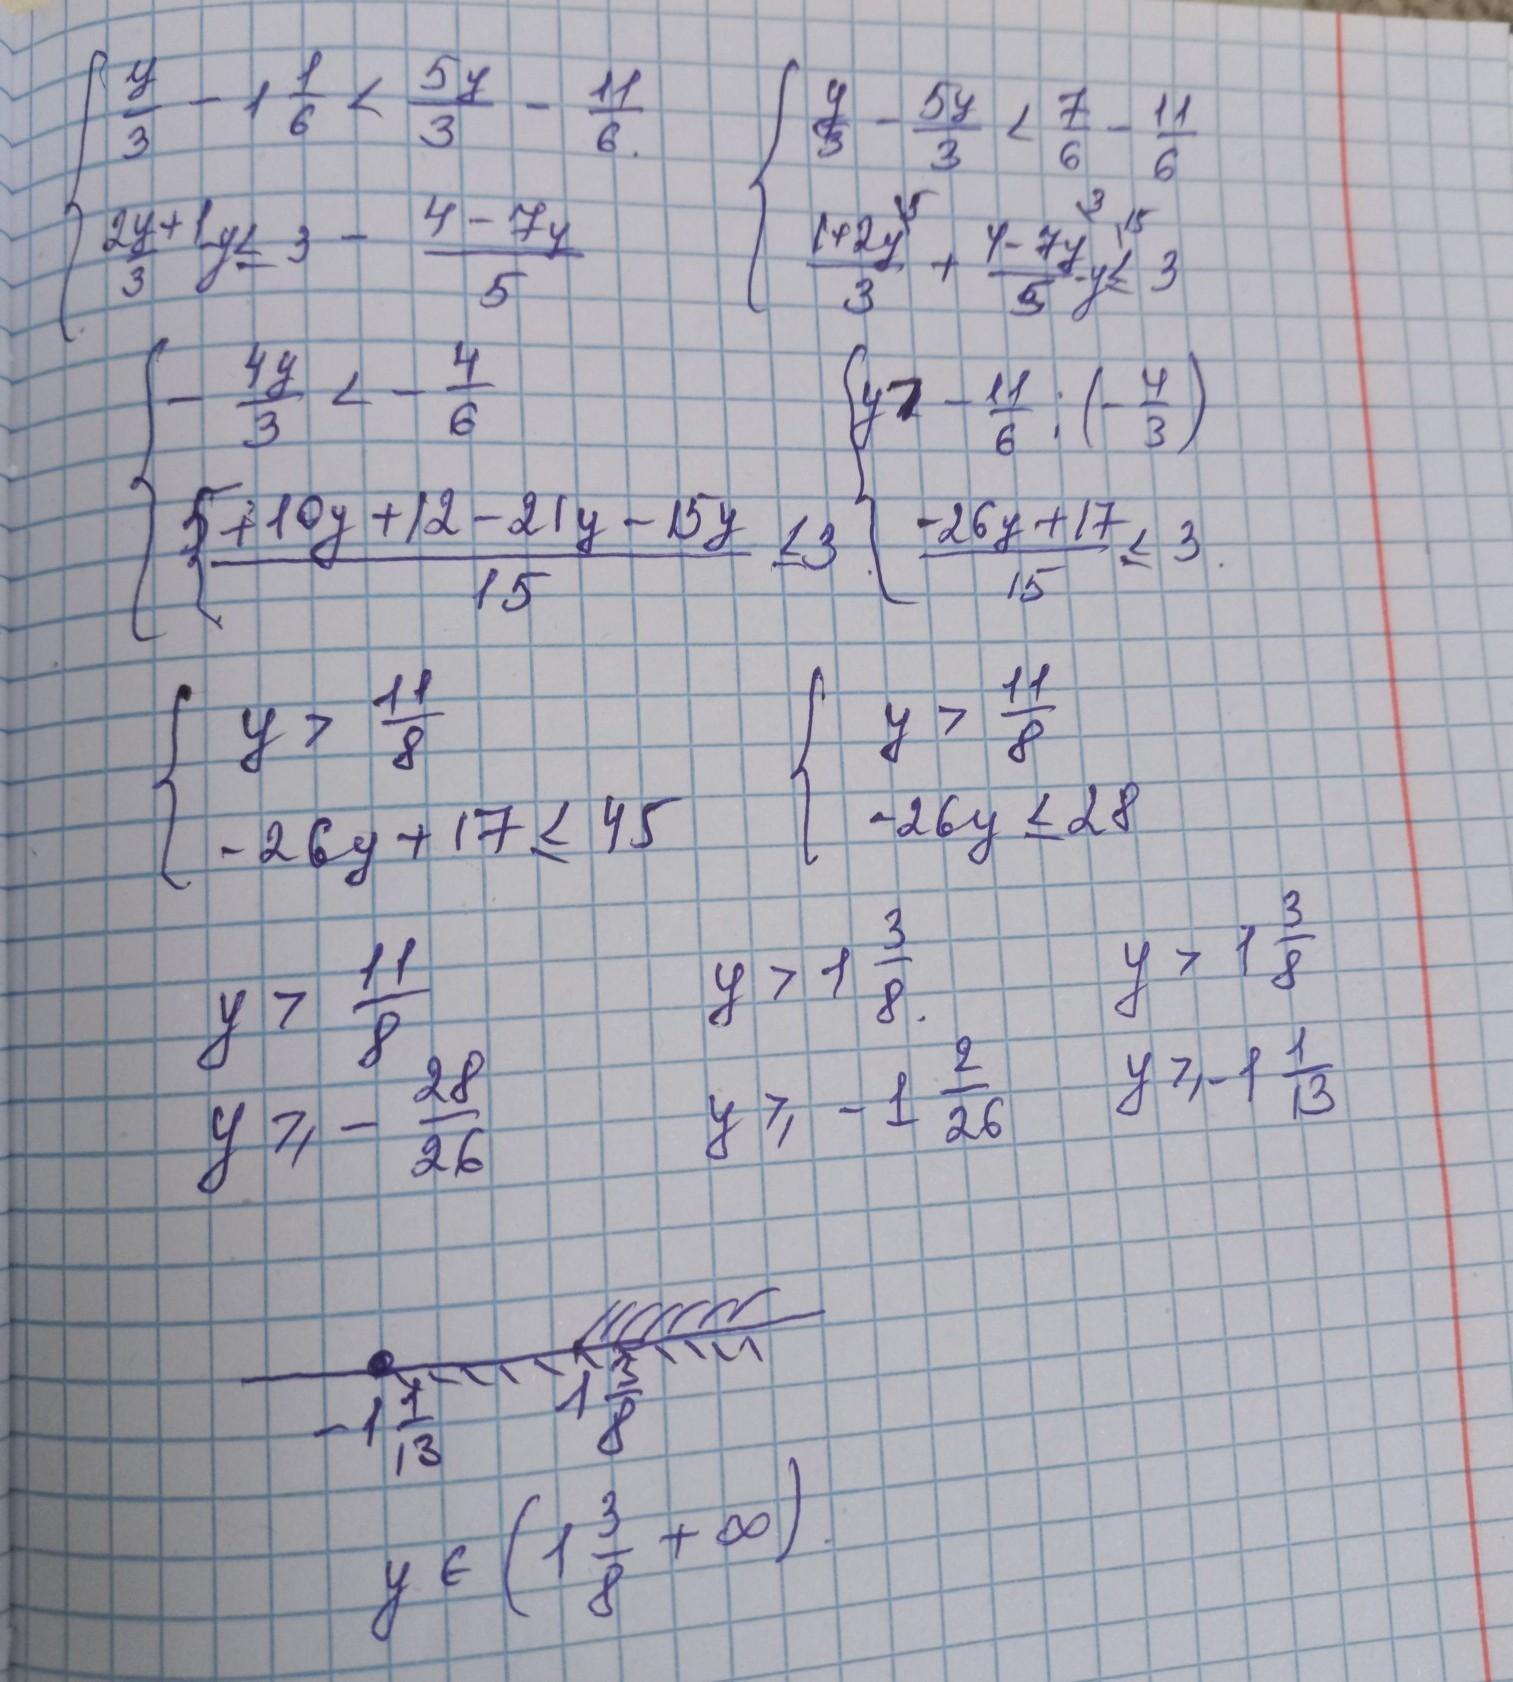 y/3 - 1 1/6 < 5y/3 - 11/6.
(2y+1)/3 y ≤ 3 - (4-7y)/5
y/3 - 5y/3 < 7/6 - 11/6
(1+2y)/3 ^5 + (4-7y)/5 ^3 - y ≤ 3 ^15
- 4y/3 < - 4/6
(5+10y+12-21y-15y)/15 ≤ 3.
y > - 11/6 : (- 4/3)
(-26y+17)/15 ≤ 3.
y > 11/8
-26y + 17 ≤ 45
y > 11/8
-26y ≤ 28
y > 11/8
y ≥ - 28/26
y > 1 3/8.
y ≥ - 1 2/26
y > 1 3/8
y ≥ - 1 1/13
-1 1/13 1 3/8
y ∈ (1 3/8 + ∞).